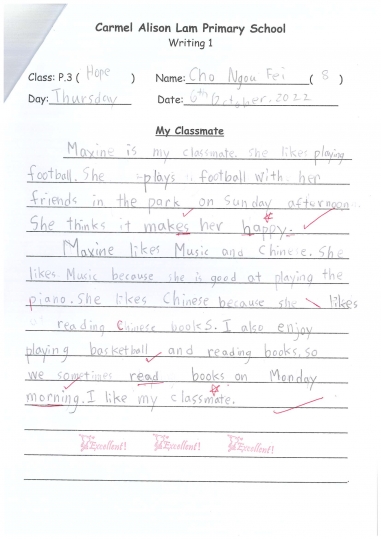 Carmel Alison Lam Primary School
Writing 1
Class: P.3 ( Hope ) Name: Cho Ngou Fei ( 8 )
Day: Thursday Date: 6th October, 2022
My Classmate
Maxine is my classmate. She likes playing
football. She plays football with her
friends in the park on Sunday afternoon.
She thinks it makes her happy.
Maxine likes Music and Chinese. She
likes Music because she is good at playing the
piano. She likes Chinese because she likes
reading Chinese books. I also enjoy
playing basketball and reading books, so
we sometimes read books on Monday
morning. I like my classmate.
Excellent! Excellent! Excellent!